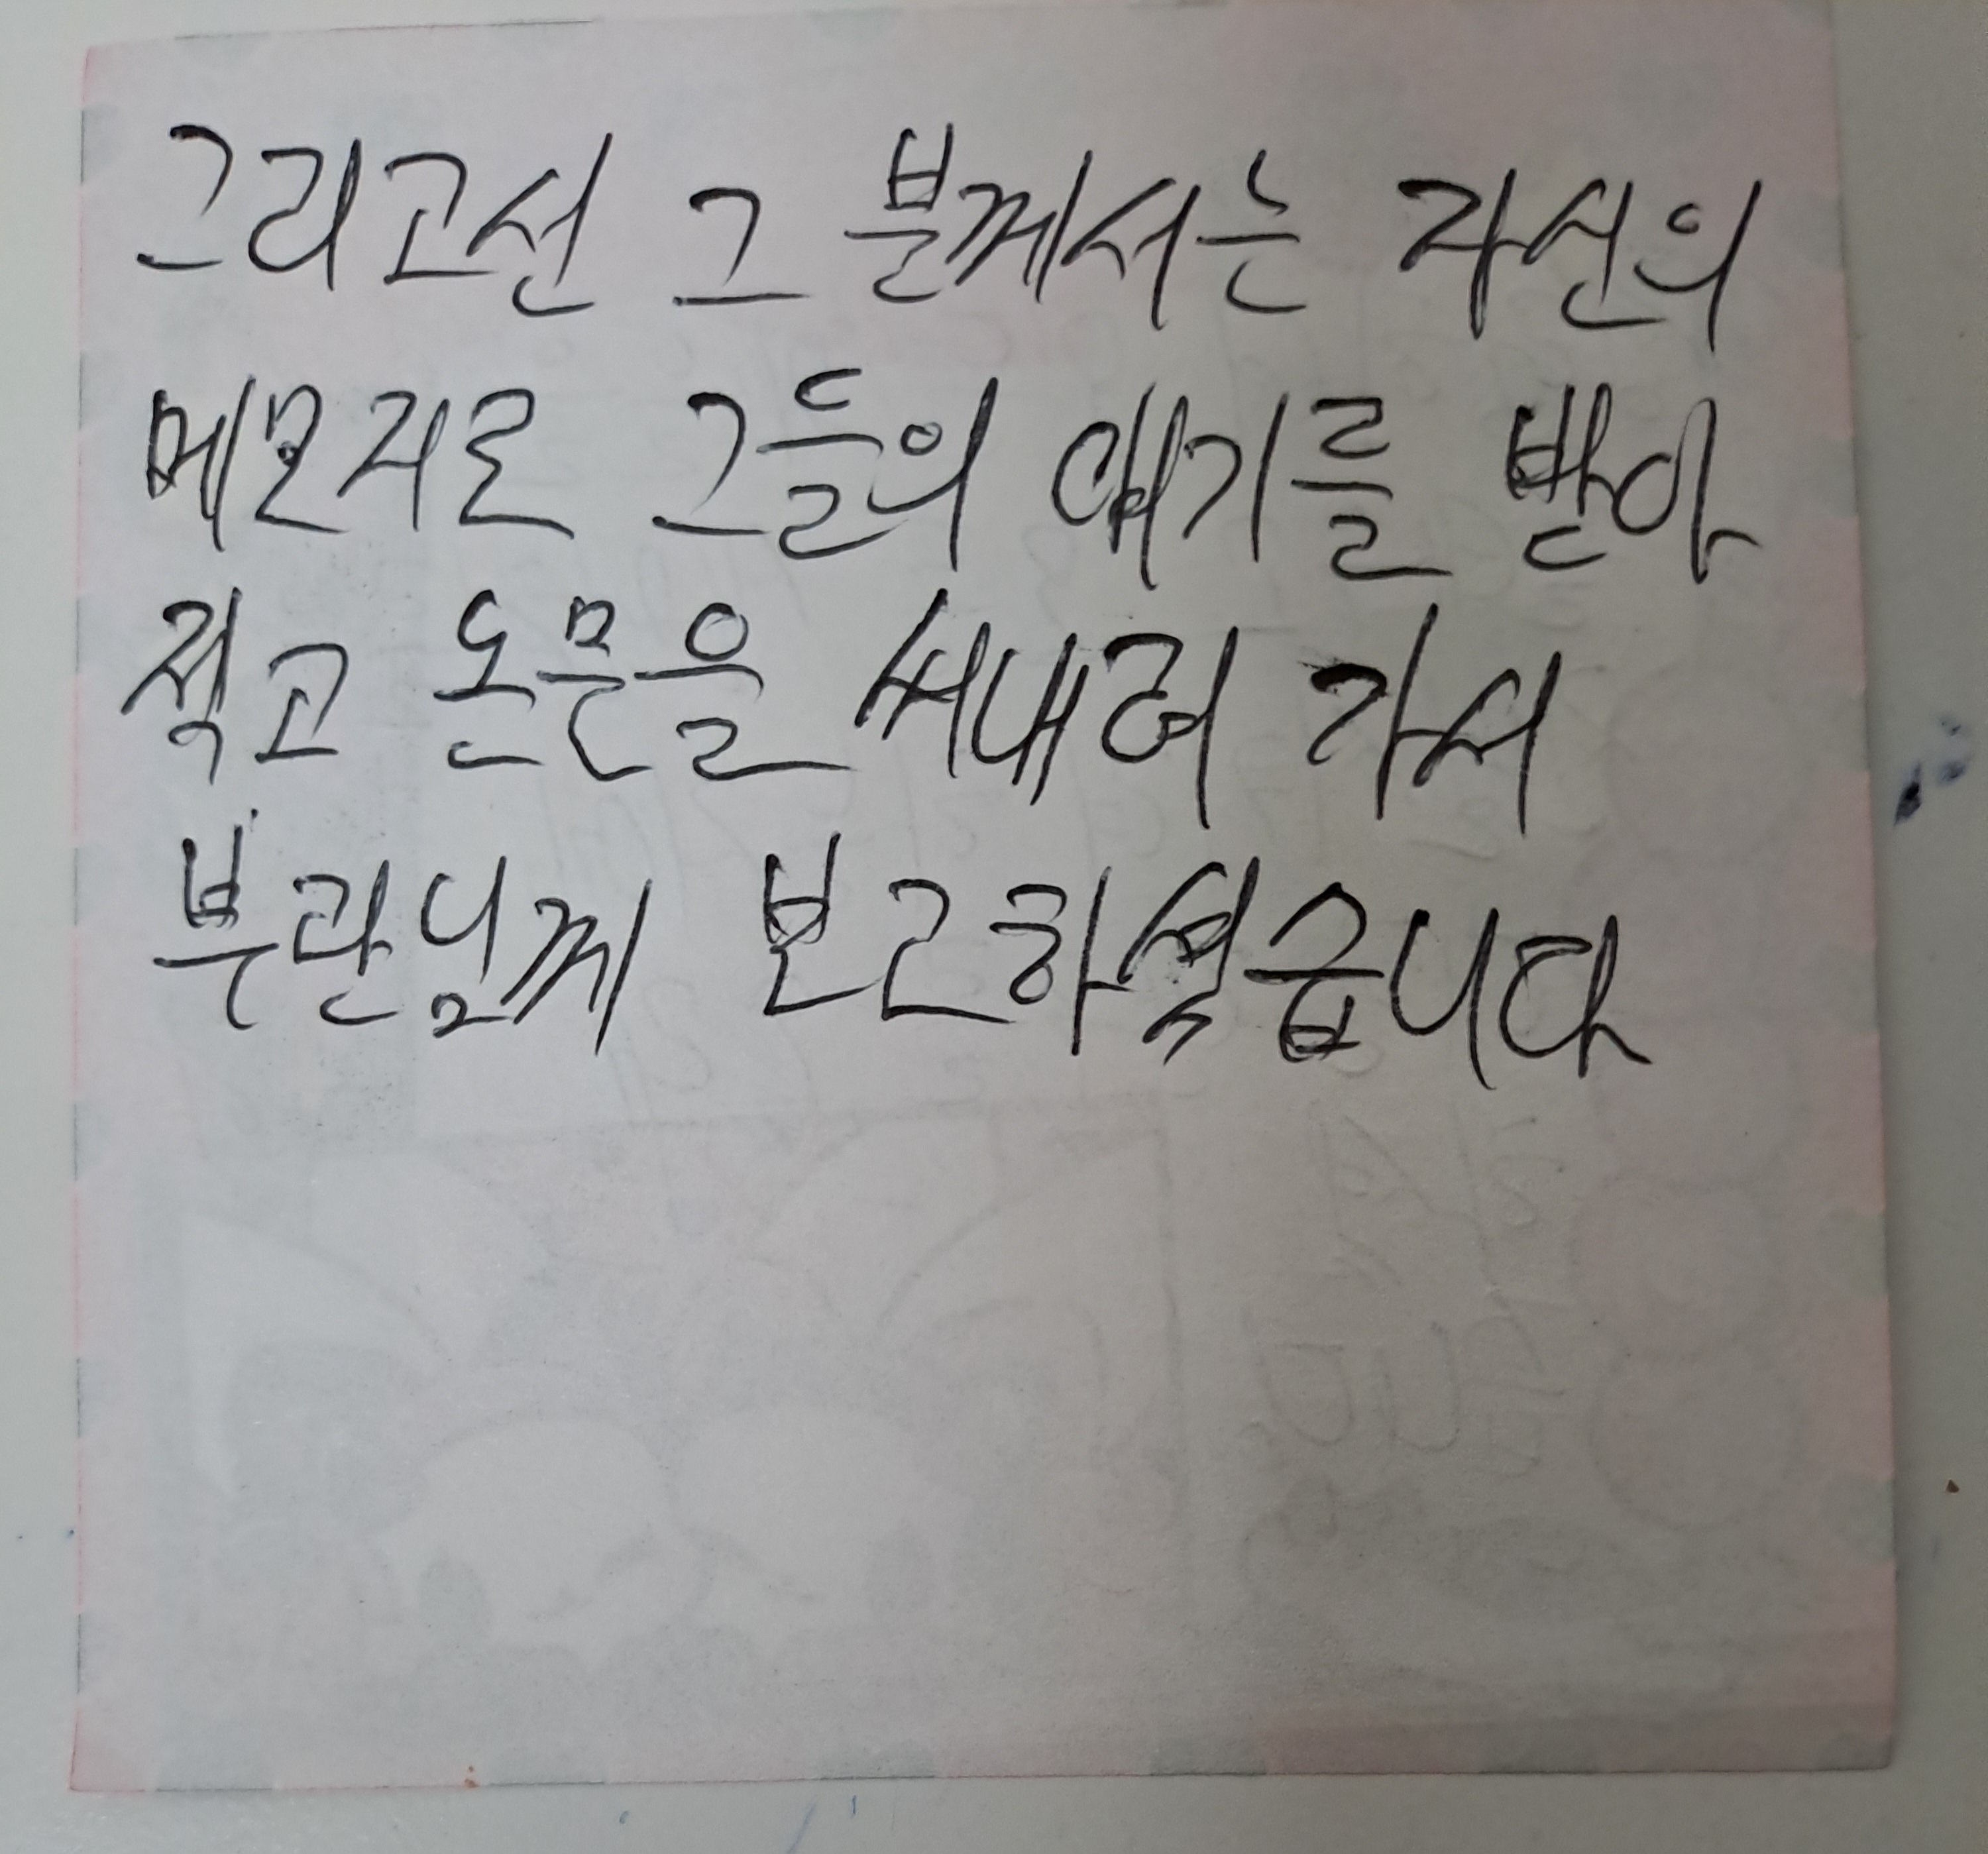 그리고선 그 분께서는 자신의
메모지로 그들의 얘기를 받아
적고 논문을 써내려 가서
부관님께 보고하셨습니다